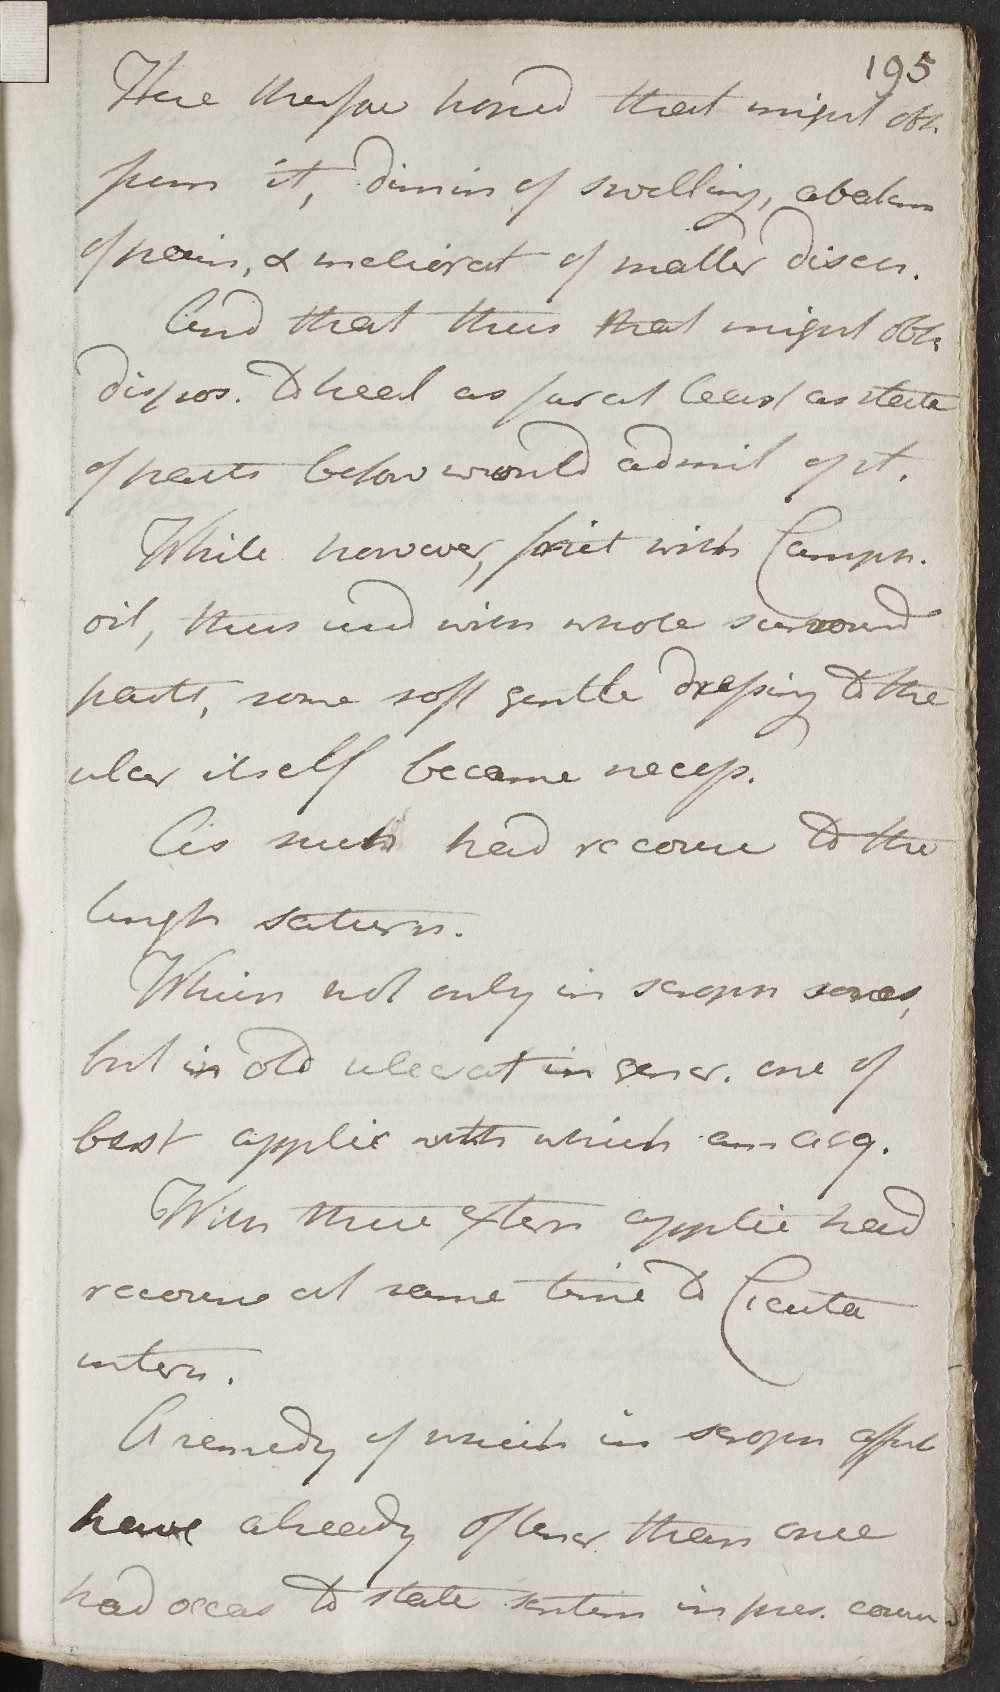 195
Here therefore hoped that might obt.
from it, dimin of swelling, abatem
of pain, & meliorat of matter disch.
And that thus that might obt.
dispos. to heal as far at least as state
of parts below would admit of it.
While however, frict with Camph.
oil, thus used with whole surround
parts, some soft gentle dressing to the
ulcer itself became necess.
As such had recourse to the
Ungt saturn.
Which not only in scroph sores,
but in old ulcerat in gener. one of
best applic with which am acq.
With these extern applic had
recourse at same time to Cicuta
intern.
A remedy of which in scroph affect
have already oftener than once
had occas to state sentim in pres. course